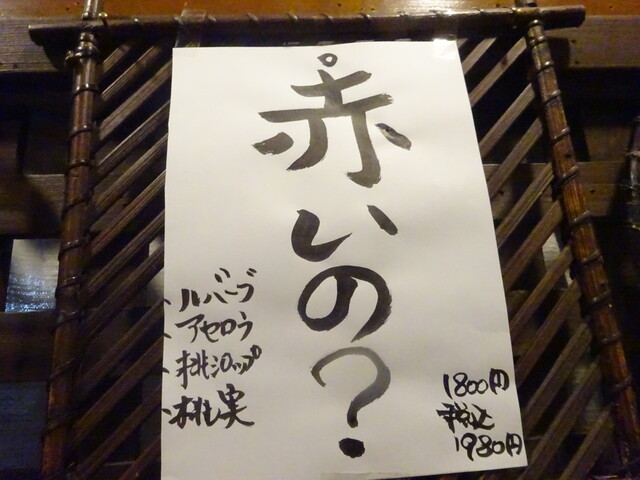 赤いの？
ルバーブ
アセロラ
桃シロップ
桃実
1800円
税込
1980円